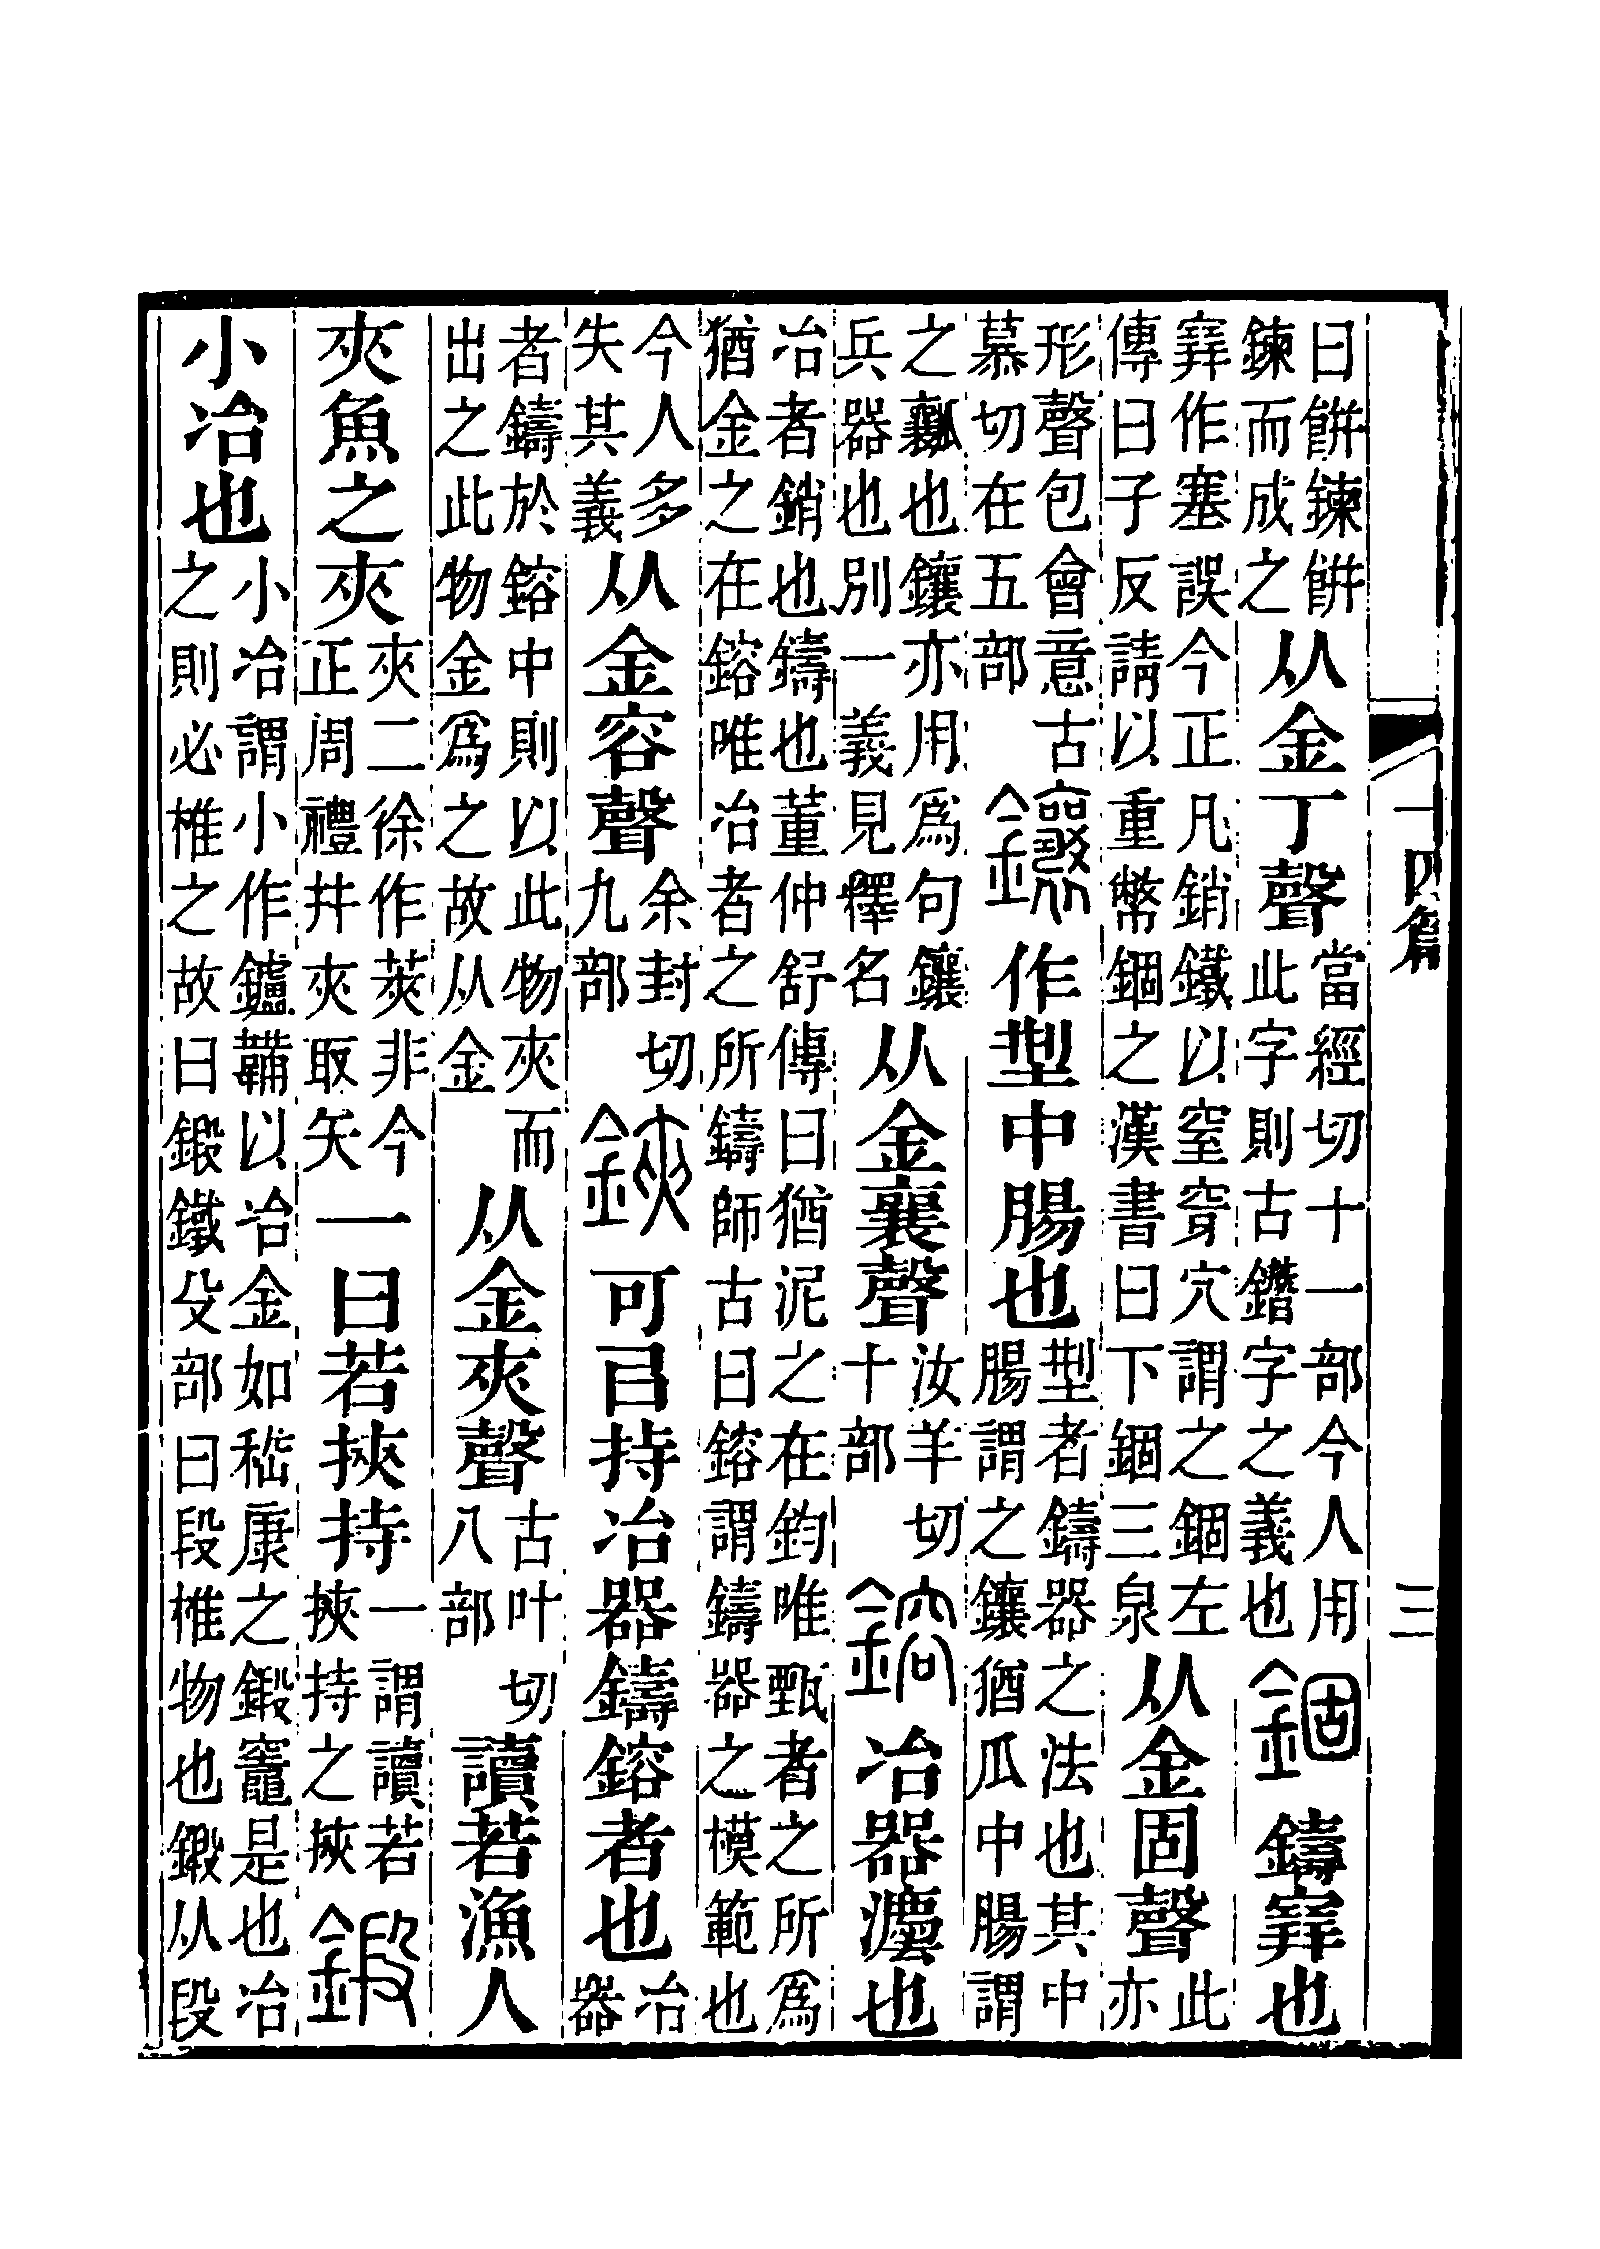 十四篇 三
曰餅鍊餅
鍊而成之
从金丁聲
當經切十一部今人用
此字則古鐕字之義也
錮
鑄𡫳也
此
亦
𡫳作塞誤今正凡銷鐵以窒穿穴謂之錮左
傳曰子反請以重幣錮之漢書曰下錮三泉
从金固聲
形聲包會意古
慕切在五部
鑲
作型中腸也
型者鑄器之法也其中
腸謂之鑲猶瓜中腸謂
之瓤也鑲亦用爲句鑲
兵器也別一義見釋名
从金襄聲
汝羊切
十部
鎔
冶器灋也
冶者銷也鑄也董仲舒傳曰猶泥之在鈞唯甄者之所爲
猶金之在鎔唯冶者之所鑄師古曰鎔謂鑄器之模範也
今人多
失其義
从金容聲
余封切
九部
鋏
可㠯持冶器鑄鎔者也
冶
器
者鑄於鎔中則以此物夾而
出之此物金爲之故从金
从金夾聲
古叶切
八部
讀若漁人
夾魚之夾
夾二徐作莢非今
正周禮井夾取矢
一曰若挾持
一謂讀若
挾持之挾
鍛
小冶也
小冶謂小作鑪鞴以冶金如嵇康之鍛竈是也冶
之則必椎之故曰鍛鐵殳部曰段椎物也鍛从段